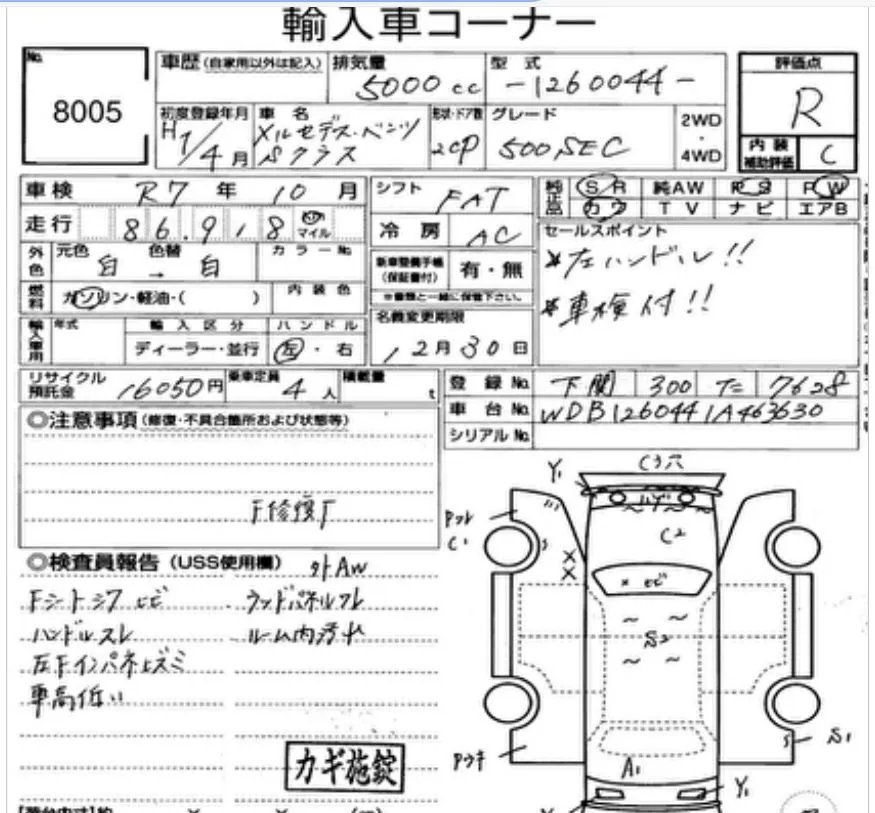 輸入車コーナー
No.
8005
車歴 (自家用以外は記入)
排気量
5000cc
型式
-1260044-
評価点
R
初度登録年月
H7/4月
車名
メルセデス・ベンツ
Sクラス
形状・ドア数
2CP
グレード
500SEC
2WD
・
4WD
内装
補助評価
C
車検 R7年 10月
シフト FAT
純正品
SR 純AW PS PW
カワ TV ナビ エアB
走行 86,918 マイル
冷房 AC
セールスポイント
*左ハンドル!!
*車検付!!
外色
元色 色替
白 → 白
カラーNo.
新車整備手帳
(保証書付)
有・無
※書類と一緒に保管下さい。
燃料
ガソリン・軽油・( )
内装色
名義変更期限
12月30日
輸入車用
年式
輸入区分
ディーラー・並行
ハンドル
左・右
リサイクル
預託金
16050円
乗車定員 4人
積載量 t
登録No. 下関 300 7628
車台No. WDB1260441A463630
シリアルNo.
◎注意事項 (修復・不具合箇所および状態等)
F修復
◎検査員報告 (USS使用欄)
外AW
Fシートシワ ヒビ
ラッドパネルフレ
ハンドルスレ
ルーム内汚れ
左Fインパネ上ズミ
車高低い
カギ施錠
Y1
C3穴
ハゲ
C1
C2
×
×
× ヒビ
S2
S1
A1
Y1